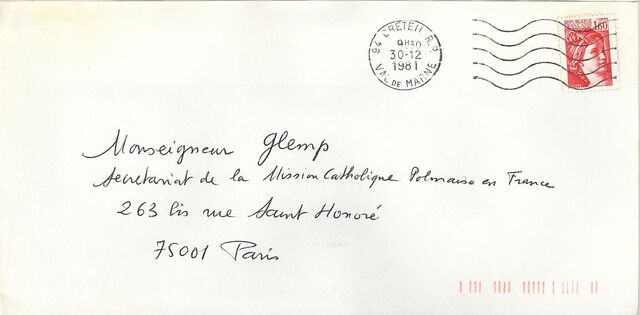 94 CRETEIL R.P.
9H30
30-12
1981
VAL DE MARNE
1,60
Monseigneur Glemp
Secretariat de la Mission Catholique Polonaise en France
263 bis rue Saint Honoré
75001 Paris